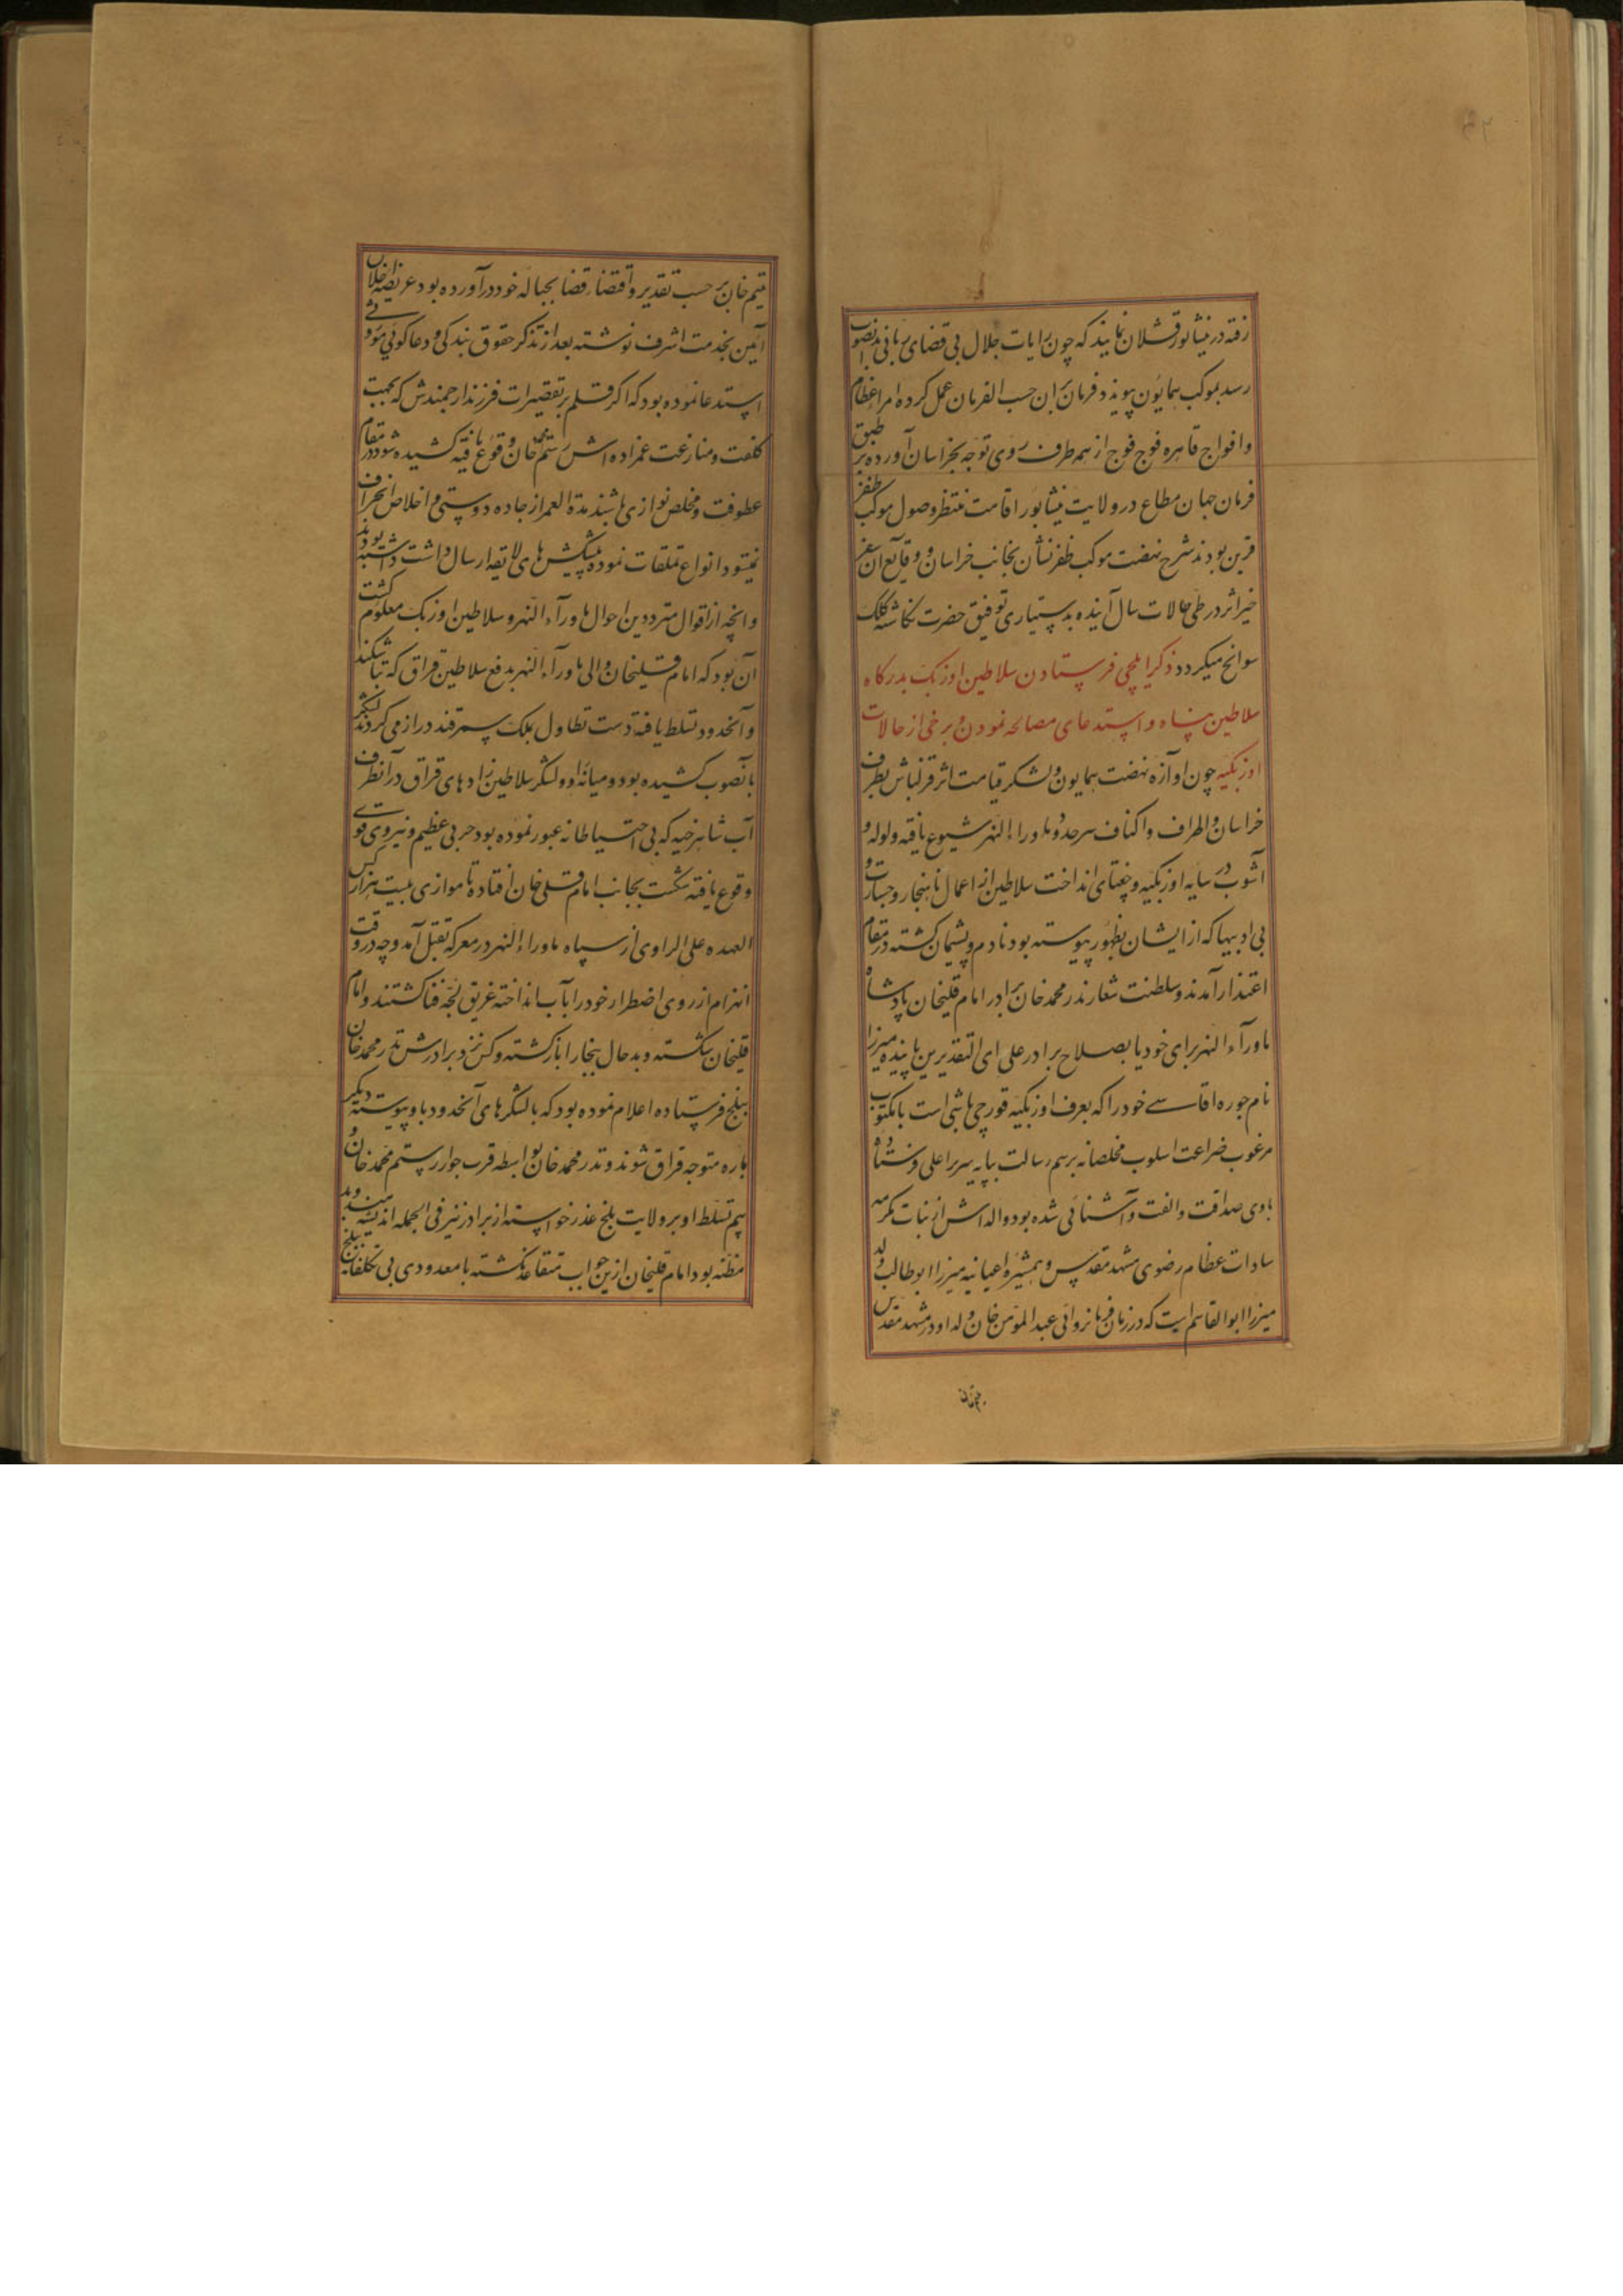 رفته در نیشابور قشلان نمایند که چون رایات جلال بی قضای ربانی بدانصوب
رسد بموکب همایون پیوندد فرمان بران حسب الفرمان عمل کرده امراء عظام
وافواج قاهره فوج فوج از همه طرف روی توجه بخراسان آورده بر طبق
فرمان جهان مطاع در ولایت نیشابور اقامت منتظر وصول موکب ظفر
قرین بودند شرح نهضت موکب ظفر نشان بجانب خراسان و وقایع آن سفر
خیر اثر در طی حالات سال آینده بدستیاری توفیق حضرت نگاشته کلک
سوانح میکردد ذکر ایلچی فرستادن سلاطین اوزبک بدرکاه
سلاطین پناه و استدعای مصالحه نمودن و برخی از حالات
اوزبکیه چون اوازه نهضت همایون و لشکر قیامت اثر قزلباش بطرف
خراسان و اطراف و اکناف سرحد و ماوراء النهر شیوع یافته ولوله و
آشوب در سایه اوزبکیه و چغتای انداخت سلاطین از اعمال ناهنجار و جسارت و
بی ادبیها که از ایشان بظهور پیوسته بود نادم و پشیمان کشته در مقام
اعتذار آمدند و سلطنت شعار ندر محمد خان برادر امام قلیخان پادشاه
ماورآء النهر برای خود یا بصلاح برادر علی ای التقدیرین پاینده میرزا
نام جوره اقاسے خود را که بعرف اوزبکیه قورچی باشی است با مکتوب
مرغوب ضراعت اسلوب مخلصانه برسم رسالت بپایه سریر اعلی فرستاده
باوی صداقت و الفت و آشنائی شده بود والده اش از بنات مکرمه
سادات عظام رضوی مشهد مقدس و همشیره اعیانیه میرزا ابوطالب ولد
میرزا ابوالقاسم است که در زمان فرمانروائی عبدالمؤمن خان والد او در مشهد مقدس
یتیم خان
یتیم خان بر حسب تقدیر و اقتضاء قضا بحباله خود درآورده بود عریضه اخلاص
آئین بخدمت اشرف نوشته بعد از تذکر حقوق بندکی و دعا کوئی موروثے
استدعا نموده بود که اکر قلم بر تقصیرات فرزند ارجمندش که بجهت
کلفت و منازعت عمزاده اش رستم محمد خان وقوع یافته کشیده شود در مقام
عطوفت و مخلص نوازی باشند مدة العمر از جاده دوستی و اخلاص انحراف
نمیشود انواع تملقات نموده پیشکش های لایقه ارسال داشته بودند
و انچه از اقوال مترددین احوال ماورآء النهر و سلاطین اوزبک معلوم کشت
آن بود که امام قلیخان والی ماورآء النهر بدفع سلاطین قزاق که تاشکند
و آنحدود تسلط یافته دست تطاول بملک سمرقند دراز می کردند لشکر
بانصوب کشیده بود و میانه او و لشکر سلاطین زادهای قزاق در آنطرف
آب شاهرخیه که بی احتیاطانه عبور نموده بود حربی عظیم و نبردی قوے
وقوع یافته شکست بجانب امام قلی خان افتاده تا موازی بیست هزار کس
العهده علی الراوی از سپاه ماوراء النهر در معرکه بقتل آمد و چه در وقت
انهزام از روی اضطرار خود را بآب انداخته غریق لجّه فنا کشتند و امام
قلیخان شکسته و بد حال ببخارا باز کشته و کس نزد برادرش ندر محمد خان
ببلخ فرستاده اعلام نموده بود که با لشکرهای آنحدود باو پیوسته دیکر
باره متوجه قزاق شوند و ندر محمد خان بواسطه قرب جوار رستم محمد خان و
بیم تسلط او بر ولایت بلخ عذر خواسته از برادر نیز فی الجمله اندیشه مند و بد
مظنه بود امام قلیخان ازین جواب متقاعد نکشته با معدودی بی تکلفانه ببلخ